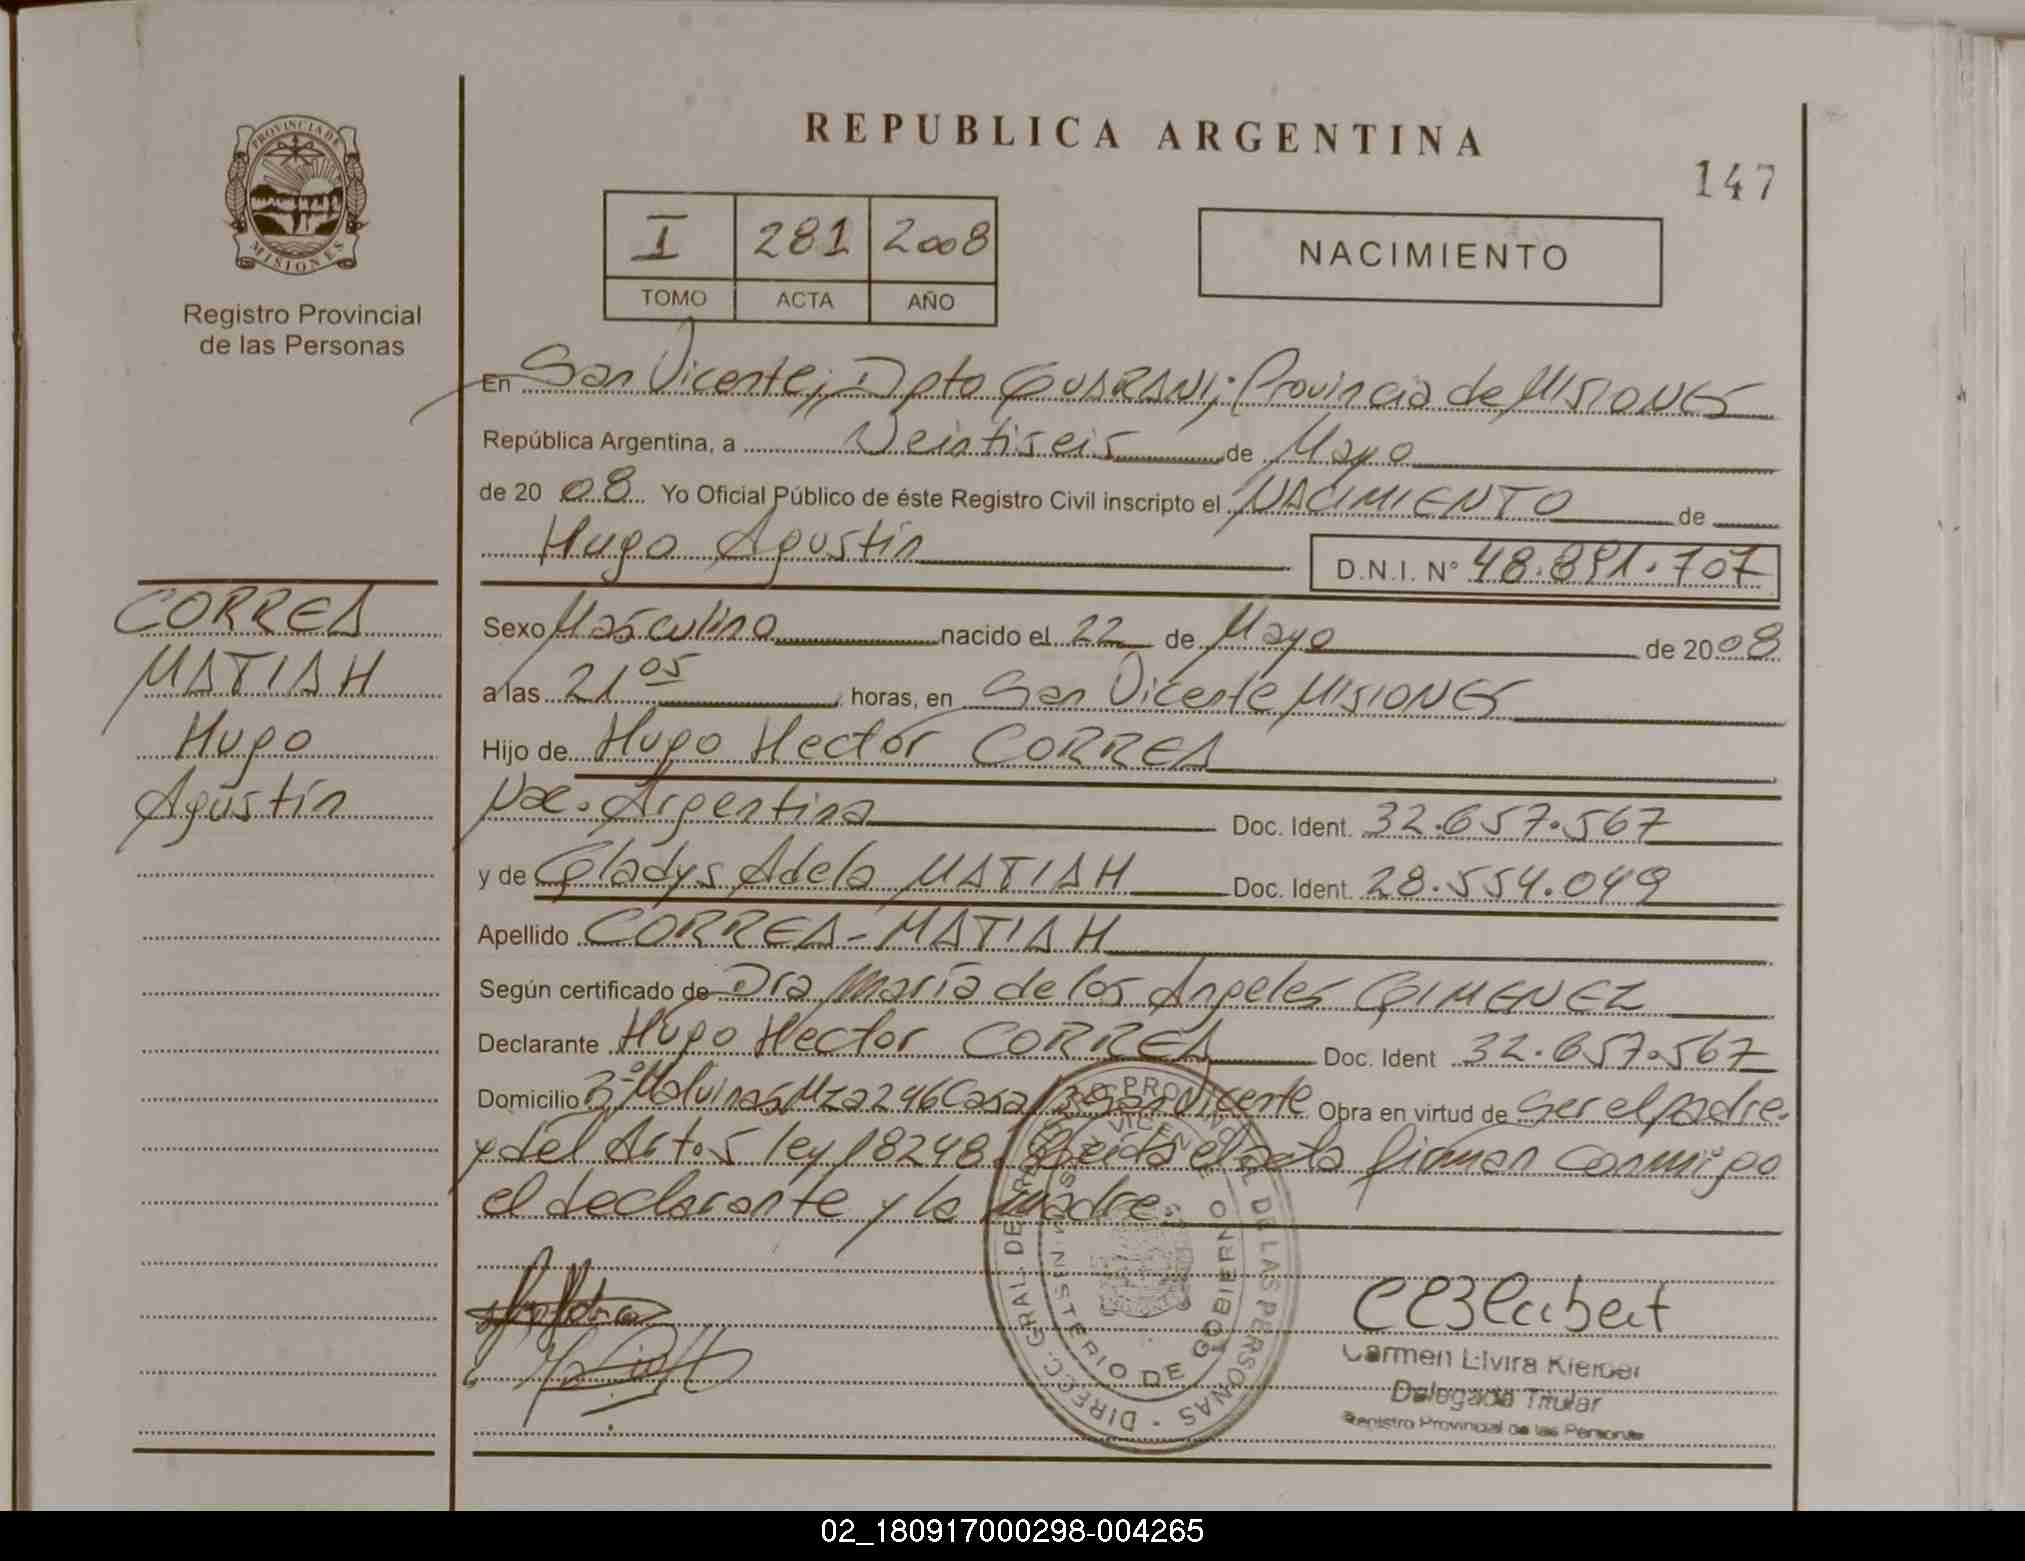 PROVINCIA DE
MISIONES
Registro Provincial
de las Personas
CORREA
MATIAH
Hugo
Agustín
REPUBLICA ARGENTINA
147
I 281 2008
TOMO ACTA AÑO
NACIMIENTO
En San Vicente; Dpto GUARANI; Provincia de MISIONES
República Argentina, a Veintiseis de Mayo
de 20 08 Yo Oficial Público de éste Registro Civil inscripto el NACIMIENTO de
Hugo Agustín D.N.I. N° 48.891.707
Sexo Masculino nacido el 22 de Mayo de 2008
a las 21 05 horas, en San Vicente MISIONES
Hijo de Hugo Hector CORREA
Nac. Argentina Doc. Ident. 32.657.567
y de Gladys Adela MATIAH Doc. Ident. 28.554.049
Apellido CORREA - MATIAH
Según certificado de Dra María de los Angeles GIMENEZ
Declarante Hugo Hector CORREA Doc. Ident 32.657.567
Domicilio Bº Malvinas Mza 246 Casa San Vicente Obra en virtud de Ser el padre.
y del Art. 5 ley 18248. Leída el acta firman conmigo
el declarante y la madre.
DIRECC. GRAL. DEL DE LAS PERSONAS
MINISTERIO DE GOBIERNO
Carmen Elvira Kleiber
Delegada Titular
Registro Provincial de las Personas
02_180917000298-004265